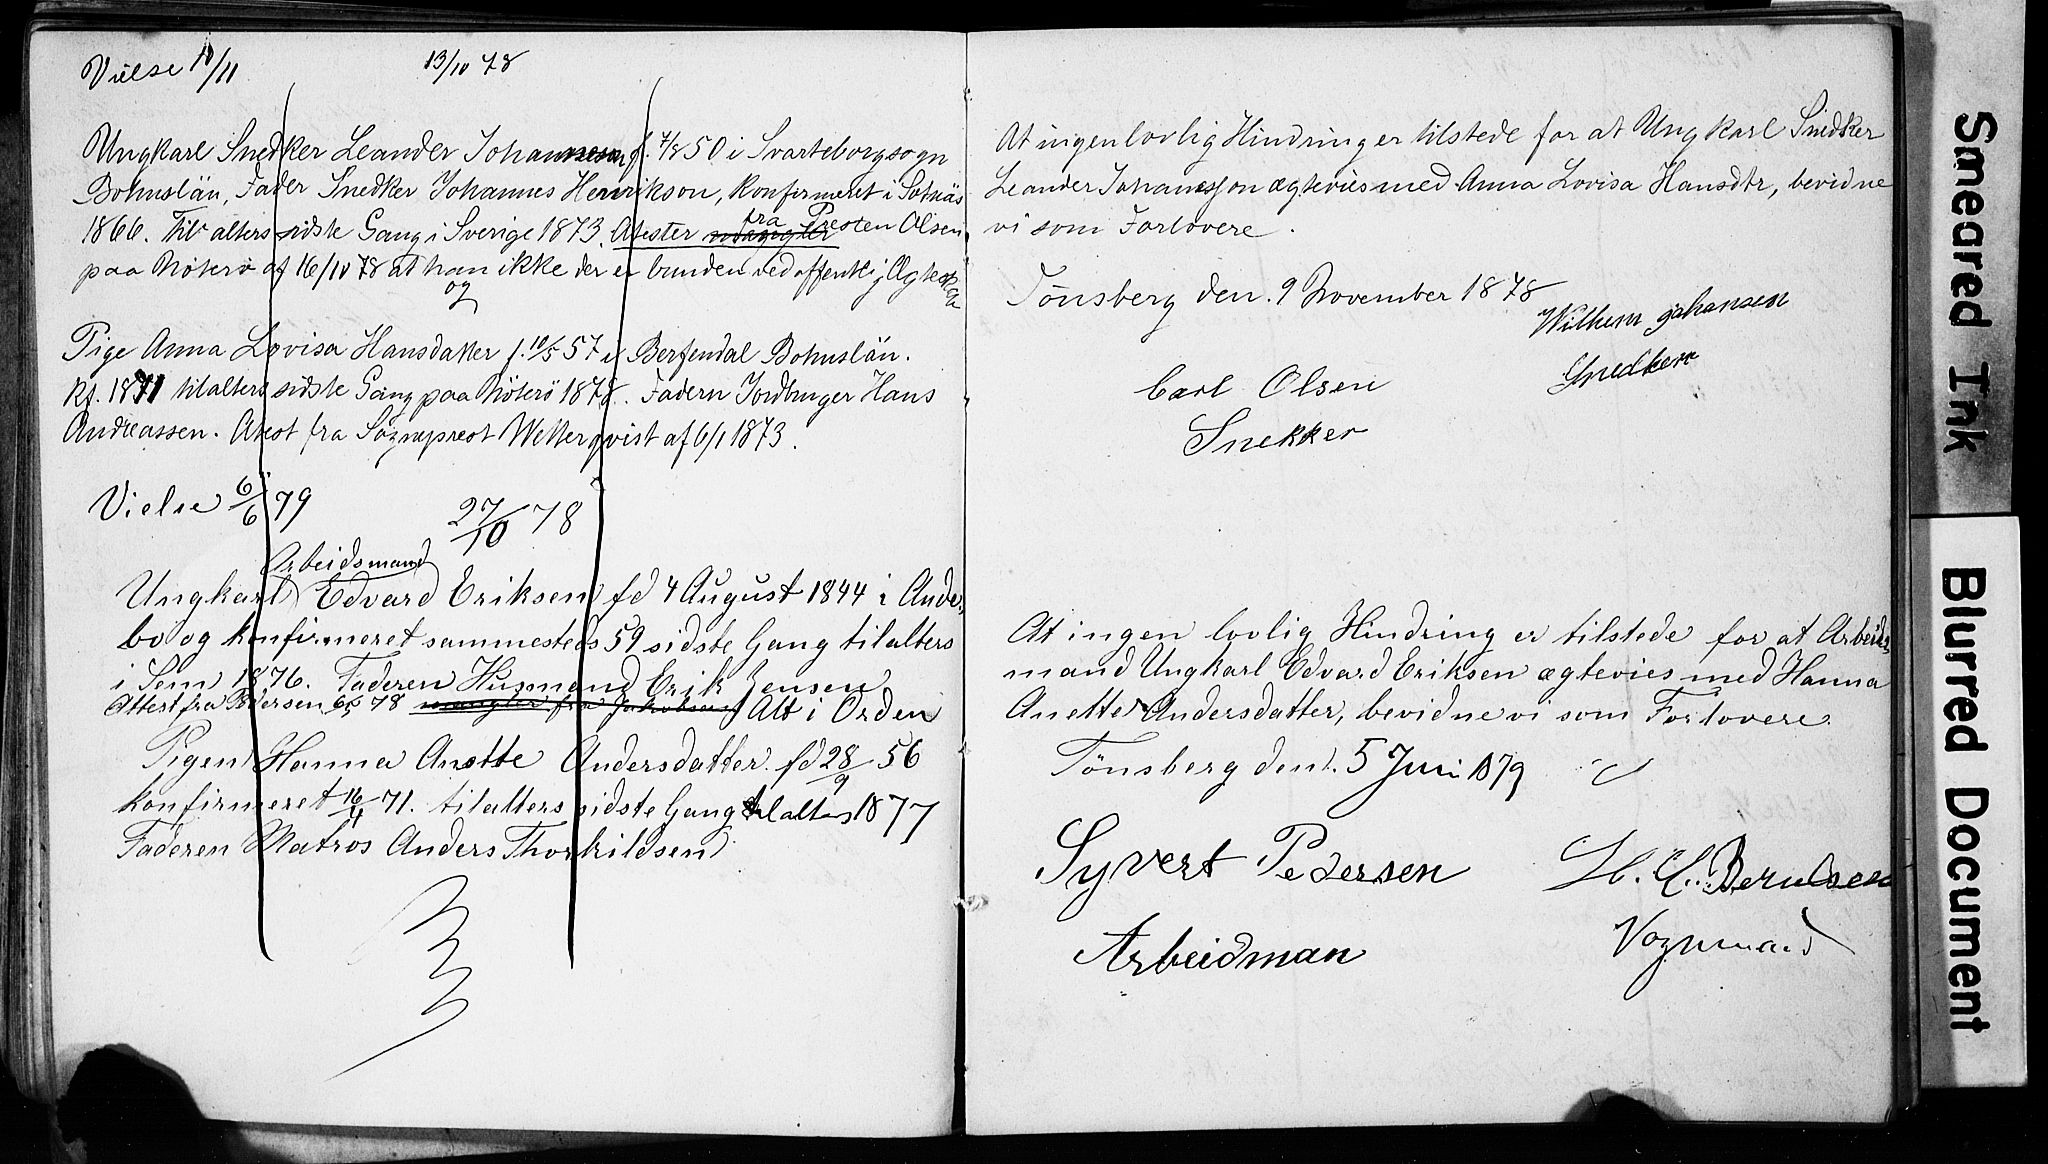 Vielse 10/11 13/10 78
Ungkarl Snedker Leander Johannesson f. 7/8 50 i Svarteborgsogn
Bohuslän, Fader Snedker Johannes Henrikson, konfirmeret i Sotnäs
1866. Tilalters sidste Gang i Sverige 1873. Atester fra Presten Olsen
paa Nöterö af 16/10 78 at han ikke der er bunden ved offentlig Ægteskab
og
Pige Anna Lovisa Hansdatter f. 10/5 57 i Berfendal Bohuslän.
Kf. 1871 tilalters sidste Gang paa Nöterö 1878. Fadern Jordbruger Hans
Andreassen. Atest fra Sogneprest Wetterqvist af 6/1 1873.
Vielse 6/6 79 27/10 78
Arbeidsmand
Ungkarl Edvard Eriksen fd 4 August 1844 i Ande-
bo og konfirmeret sammesteds 59 sidste Gang tilalters
i Sem 1876. Faderen Husmand Erik Jensen
Attest fra Pedersen 78 mangler fra Jakobsen Alt i Orden
Pigen Hanna Anette Andersdatter fd 28/9 56
konfirmeret 16/4 71. tilalters sidste Gang tilalters 1877
Faderen Matros Anders Thorkildsen
At ingen lovlig Hindring er tilstede for at Ungkarl Snedker
Leander Johannesson ægtevies med Anna Lovisa Hansdtr, bevidne
vi som Forlovere.
Tönsberg den 9 November 1878
Wilhem Johansen
Snedker
Carl Olsen
Snekker
At ingen lovlig Hindring er tilstede for at Arbeids
mand Ungkarl Edvard Eriksen ægtevies med Hanna
Anette Andersdatter, bevidne vi som Forlovere.
Tönsberg den 5 Juni 1879
Syvert Pedersen
Arbeidman
H. C. Berntsen
Vognmand
Smeared Ink
Blurred Document